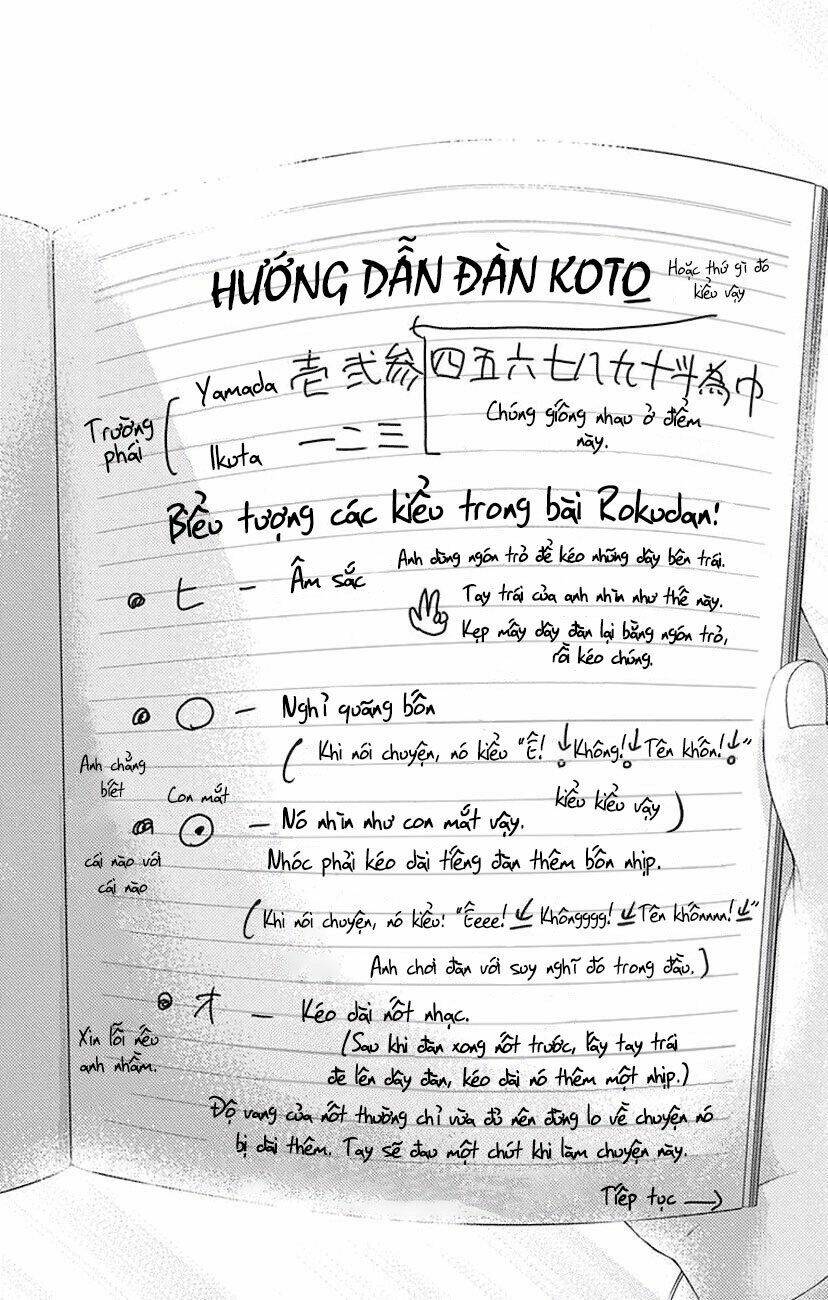 HƯỚNG DẪN ĐÀN KOTO
Hoặc thứ gì đó
kiểu vậy
Trường
phái
Yamada 壱 弐 参 四五六七八九十斗為巾
Chúng giống nhau ở điểm
này.
Ikuta 一二三
Biểu tượng các kiểu trong bài Rokudan!
ヒ - Âm sắc
Anh dùng ngón trỏ để kéo những dây bên trái.
Tay trái của anh nhìn như thế này.
Kẹp mấy dây đàn lại bằng ngón trỏ,
rồi kéo chúng.
○ - Nghỉ quãng bốn
(Khi nói chuyện, nó kiểu "Ê! ↓ Không! ↓ Tên khốn! ↓"
kiểu kiểu vậy)
Anh chẳng
biết
cái nào với
cái nào
Con mắt
⊙ - Nó nhìn như con mắt vậy.
Nhóc phải kéo dài tiếng đàn thêm bốn nhịp.
(Khi nói chuyện, nó kiểu! "Êeee! ↙ Khôngggg! ↙ Tên khốnnnn! ↙"
Anh chơi đàn với suy nghĩ đó trong đầu.)
オ - Kéo dài nốt nhạc.
Xin lỗi nếu
anh nhầm.
(Sau khi đàn xong nốt trước, lấy tay trái
đè lên dây đàn, kéo dài nó thêm một nhịp.)
Độ vang của nốt thường chỉ vừa đủ nên đừng lo về chuyện nó
bị dài thêm. Tay sẽ đau một chút khi làm chuyện này.
Tiếp tục →